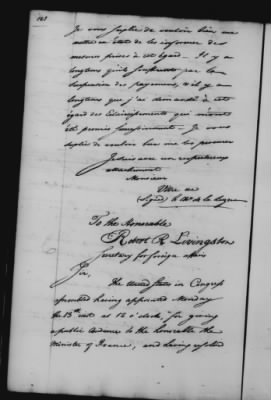 168
Je vous supplie de vouloir bien me
mettre en état de les informer des
mesures prises à cet égard. Il y a
longtems qu'ils souffrent par la
suspension des payemens, & il y a
longtems que j'ai demandé à cet
égard des Eclaircissemens qui m'ont
été promis Je vous
supplie de vouloir bien me les procurer
Je suis avec un respectueux
attachement
Monsieur
Votre &c
(Signé) le Chr de la Luzerne
To the Honorable
Robert R Livingston
Secretary for foreign affairs
Sir,
The United States in Congress
assembled having appointed Monday
the 13th inst at 12 o'clock, for giving
a public Audience to the honorable the
Minister of France, and having